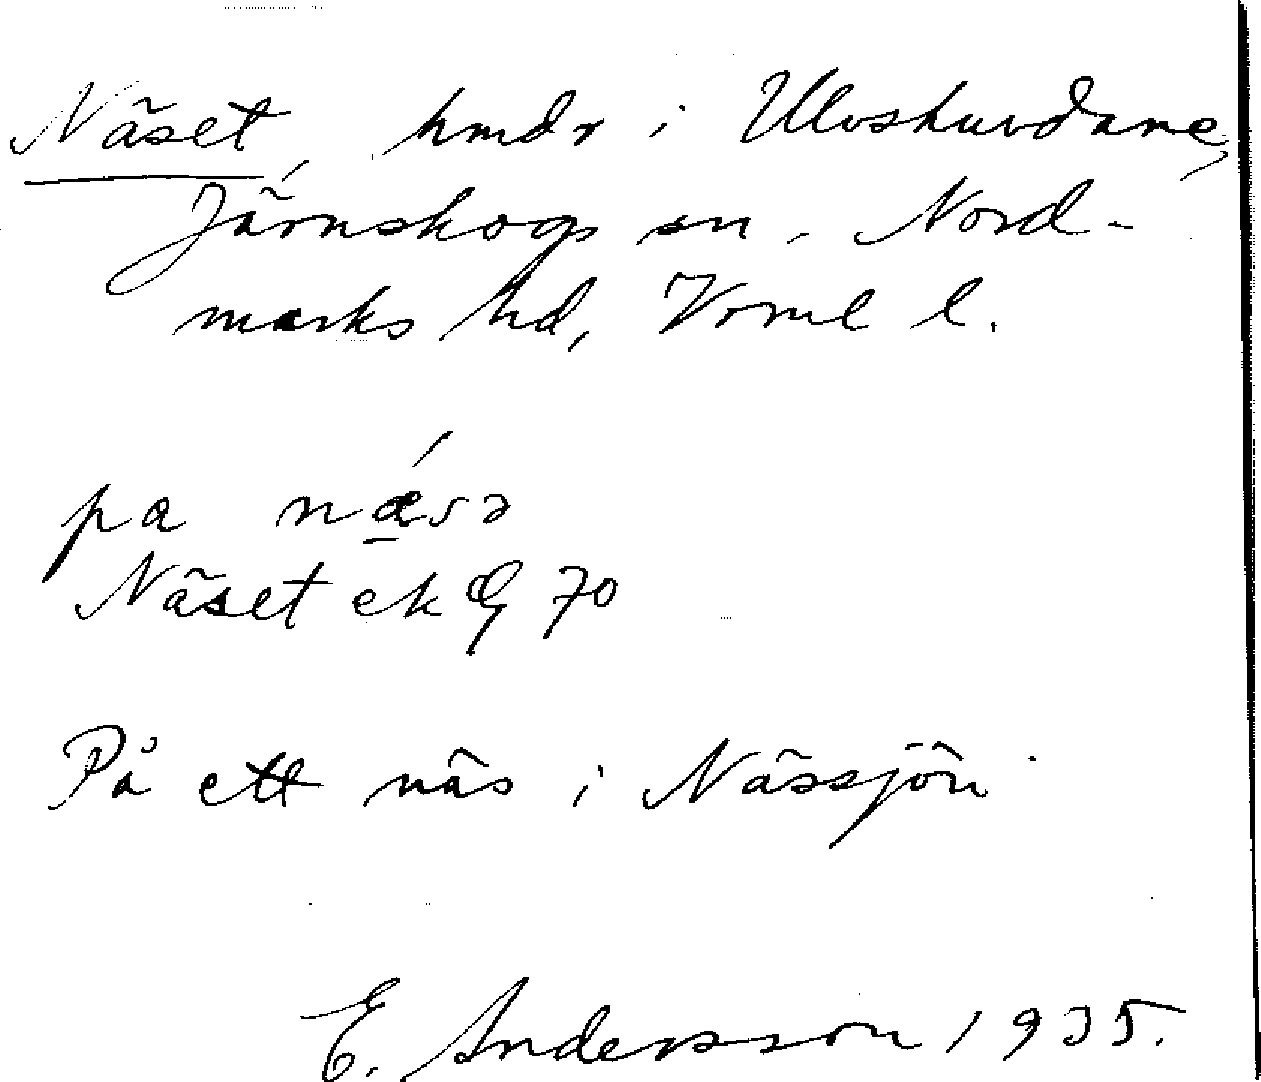 Näset, hmdr i Ulvshuvdane,
Järnskogs sn, Nord-
marks hd, Vrml l.
pa nǽ̱sə
Näset ek 70
På ett näs i Nässjön
E. Andersson 1935.